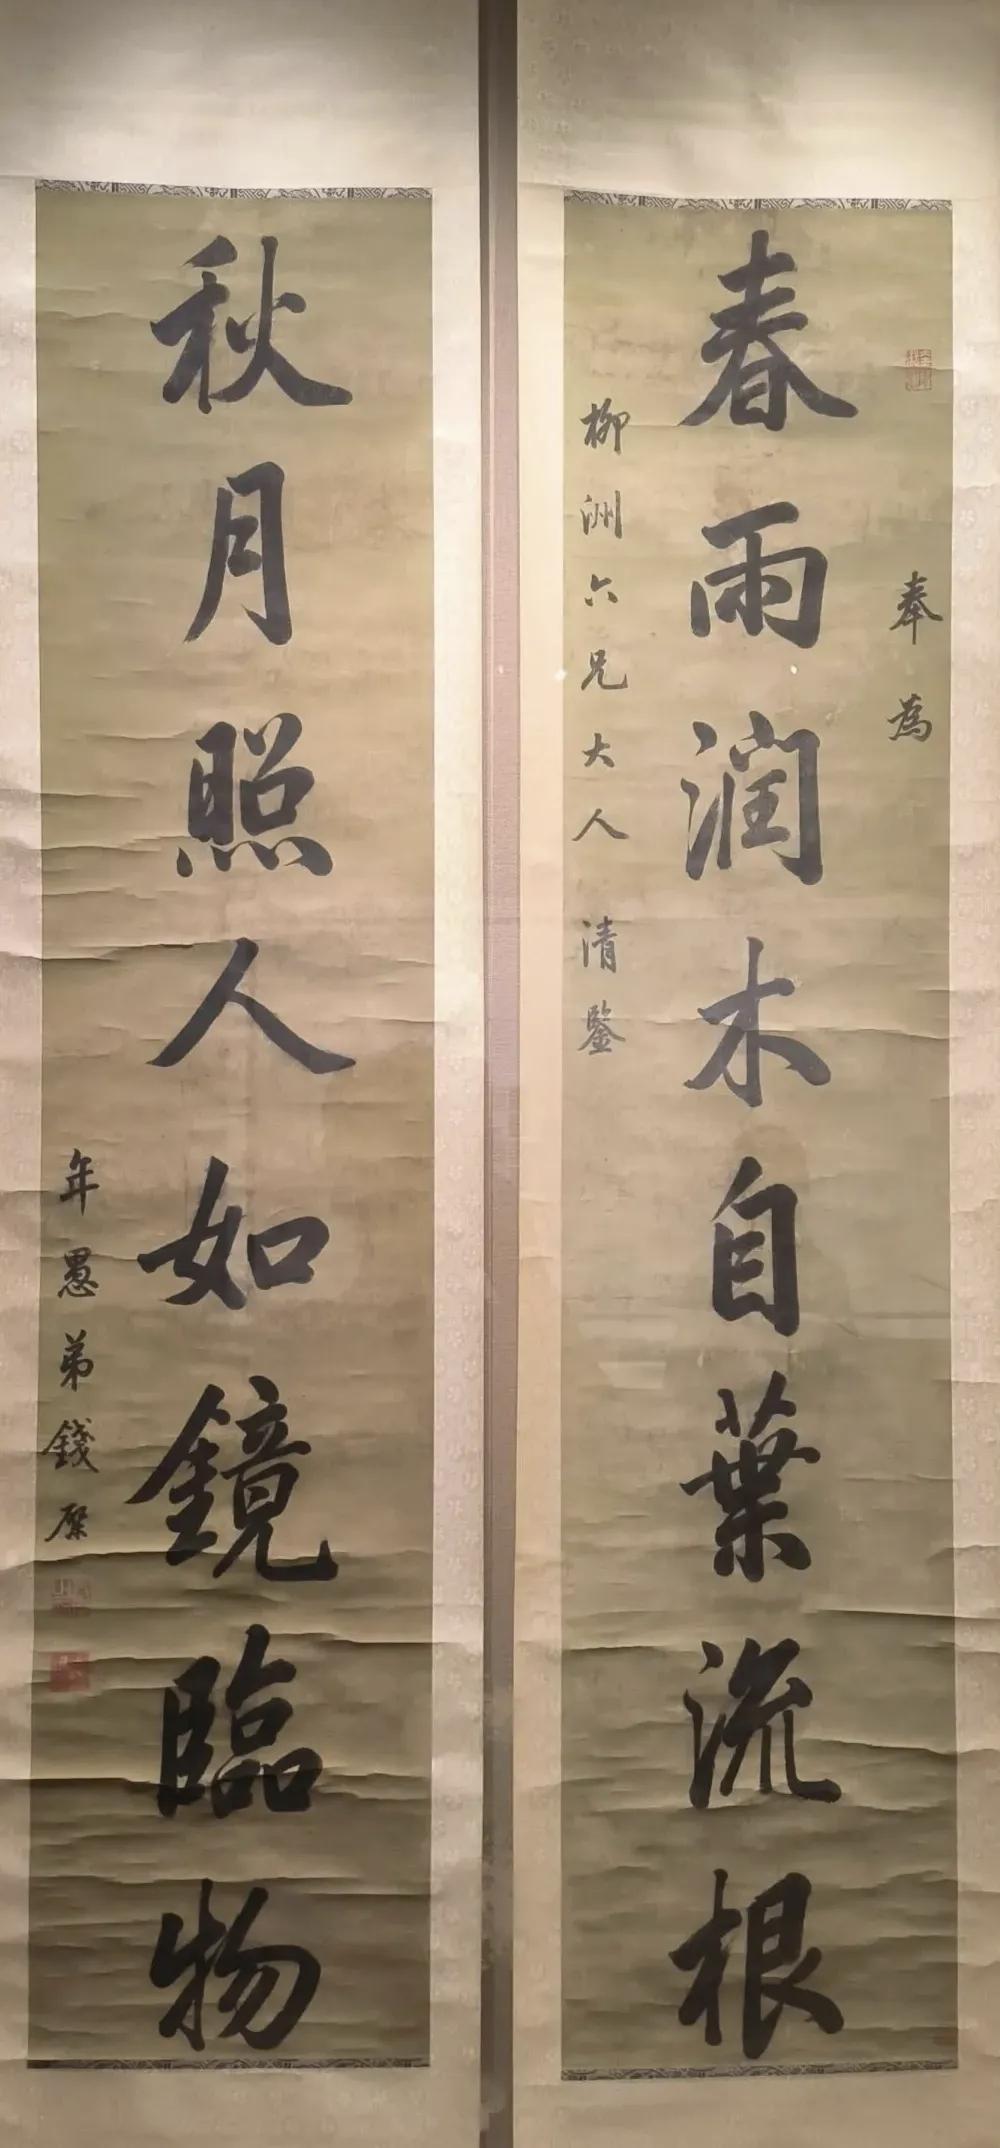 奉為
春雨潤木自葉流根
柳洲六兄大人清鑒
秋月照人如鏡臨物
年愚弟錢棨